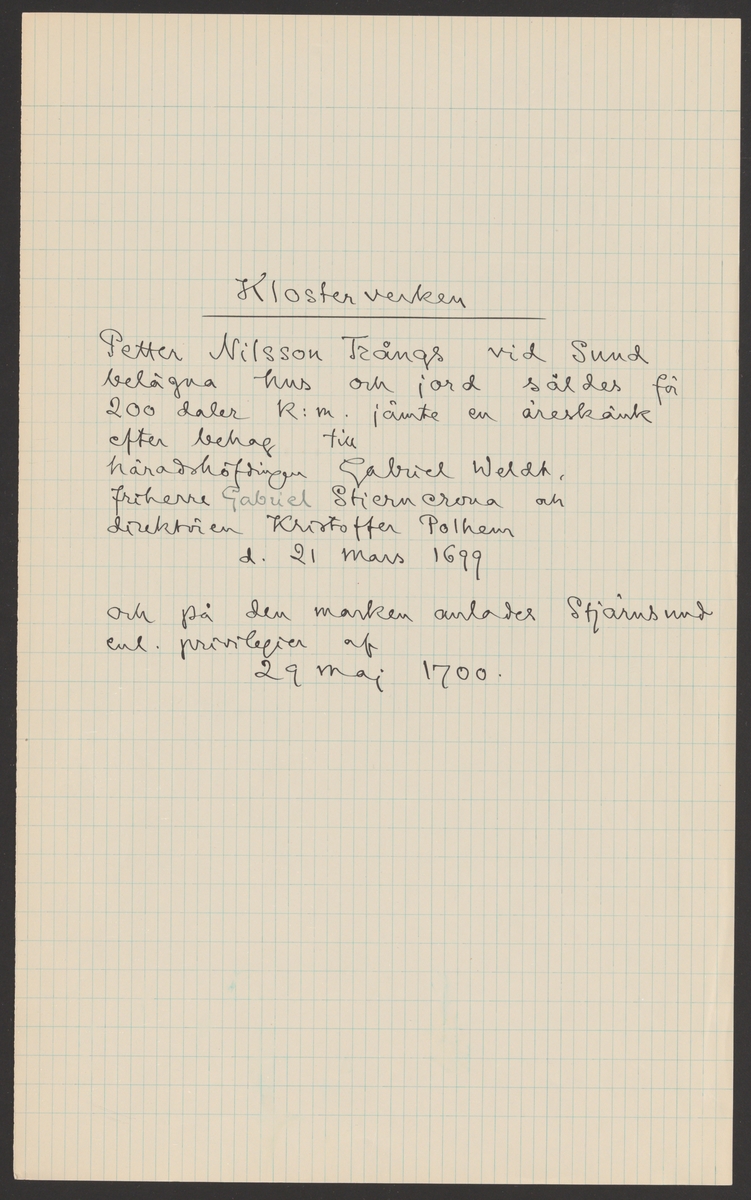 Klosterverken
Petter Nilsson Trångs vid Sund
belägna hus och jord såldes för
200 daler k:m. jämte en äreskänk
efter behag till
häradshöfdingen Gabriel Weldt,
friherre Gabriel Stierncrona och
direktören Kristoffer Polhem
d. 21 mars 1699
och på den marken anlades Stjärnsund
enl. privilegier af
29 maj 1700.